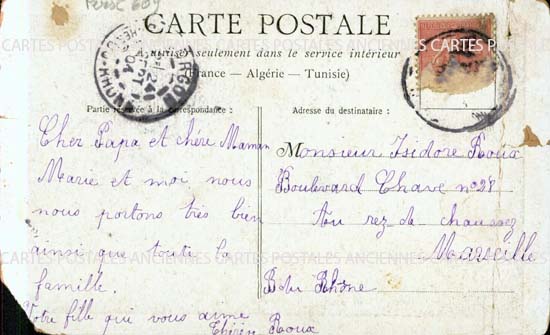 CARTE POSTALE
A utiliser seulement dans le service intérieur
(France — Algérie — Tunisie)
Partie réservée à la correspondance :
Adresse du destinataire :
Cher Papa et chère Maman
Marie et moi nous
nous portons très bien
ainsi que toute la
famille.
Votre fille qui vous aime
Thérèse Roux
Monsieur Isidore Roux
Boulevard Chave n° 28
Au rez-de chaussez
Marseille
B. du Rhône
CARTES POSTALES ANCIENNES